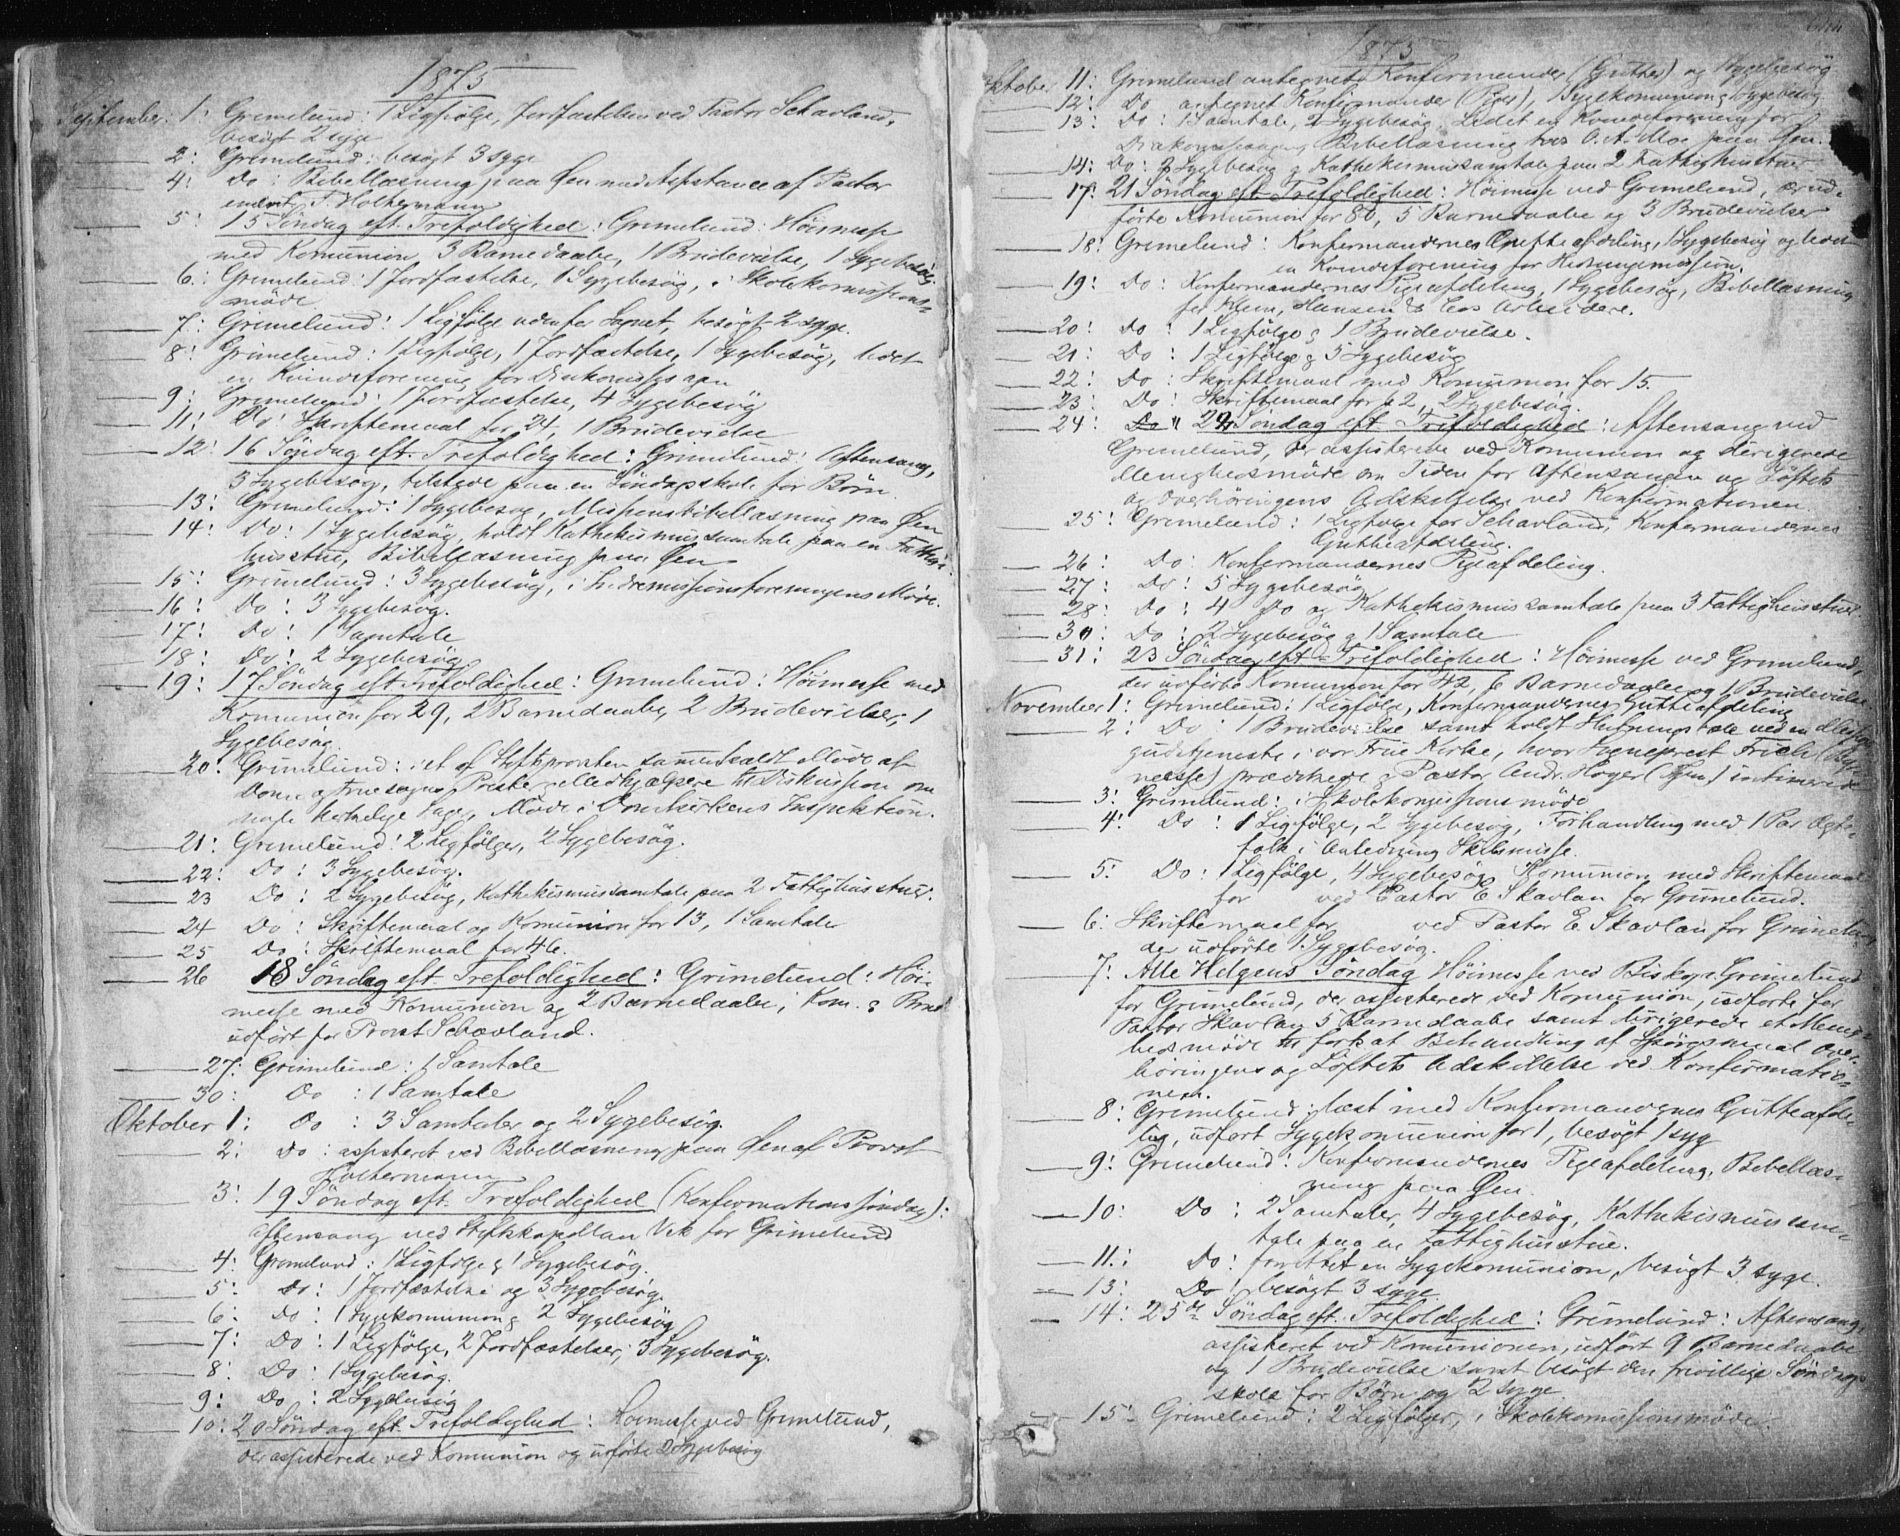 1875
September: 1: Grimelund: 1 Ligfølge, Jordfæstelsen ved Pastor Schavland,
besøgt 2 syge
2: Grimelund: besøgt 3 syge
4: Do: Bibellæsning paa Øen med Assistance af Pastor
emerit. F. Holtermann
5: 15 Søndag eft. Trefoldighed: Grimelund: Høimesse
med Komunion, 3 Barnedaabe, 1 Brudevielse, 1 Sygebesøg.
6: Grimelund: 1 Jordfæstelse, 1 Sygebesøg, i Skolekomissions-
møde
7: Grimelund: 1 Ligfølge udenfor Sognet, besøgt 2 syge.
8: Grimelund: 1 Ligfølge, 1 Jordfæstelse, 1 Sygebesøg, ledet
en Kvindeforening for Diakonissesagen
9: Grimelund: 1 Jordfæstelse, 4 Sygebesøg
11: Do: Skriftemaal for 24, 1 Brudevielse
12: 16 Søndag eft. Trefoldighed: Grimelund: Aftensang,
3 Sygebesøg, tilstede paa en Søndagsskole for Børn.
13: Grimelund: 1 Sygebesøg, Missionsbibellæsning paa Øen
14: Do: 1 Sygebesøg, holdt Kathekismussamtale paa en Fattig-
husstue, Bibellæsning paa Øen
15: Grimelund: 3 Sygebesøg, i Indremissionsforeningens Møde.
16: Do: 3 Sygebesøg.
17: Do: 1 Samtale
18: Do: 2 Sygebesøg
19: 17 Søndag eft. Trefoldighed: Grimelund: Høimesse med
Komunion for 29, 2 Barnedaabe, 2 Brudevielser, 1
Sygebesøg.
20: Grimelund: i et af Stiftsprovsten sammenkaldt Møde af
Dom og Fruesogns Præster Medhjælpere til Diskussion om
nogle kirkelige Sager, Møde i Domkirkens Inspektion.
21: Grimelund: 2 Ligfølger, 2 Sygebesøg.
22: Do: 3 Sygebesøg.
23 Do: 2 Sygebesøg, Kathekismussamtale paa 2 Fattighusstuer.
24 Do: Skriftemaal og Komunion for 13, 1 Samtale
25 Do: Skriftemaal for 46.
26 18 Søndag eft. Trefoldighed: Grimelund: Høi-
messe med Komunion og 2 Barnedaabe, i Kom.
udført for Provst Schavland.
27: Grimelund: 1 Samtale
30: Do: 1 Samtale
Oktober 1: Do: 3 Samtaler og 2 Sygebesøg.
2: Do: assisteret ved Bibellæsning paa Øen af Provst
Holtermann
3: 19 Søndag eft. Trefoldighed (Konfirmationssøndag):
Aftensang ved Stiftskapellan Vik for Grimelund
4: Grimelund: 1 Ligfølge & 1 Sygebesøg.
5: Do: 1 Jordfæstelse og 3 Sygebesøg.
6: Do: 1 Sygekomunion & 2 Sygebesøg
7: Do: 1 Ligfølge, 2 Jordfæstelser, 3 Sygebesøg.
8: Do: 1 Sygebesøg.
9: Do: 2 Sygebesøg
10: 20 Søndag eft. Trefoldighed: Høimesse ved Grimelund,
der assisterede ved Komunion og udførte 2 Sygebesøg
1875
Oktober 11: Grimelund antegnet Konfirmander (Gutter) og Sygebesøg
12: Do antegnet Konfirmander (Piger), 1 Sygekomunion & Sygebesøg
13: Do: 1 Samtale, 2 Sygebesøg. Ledet en Kvindeforening for
Diakonissesagen, Bibellæsning hos O. A. Moe paa Øen.
14: Do: 2 Sygebesøg & Kathekismussamtale paa 2 Fattighusstuer
17: 21 Søndag eft. Trefoldighed: Høimesse ved Grimelund, der ud-
førte Komunion for 80, 5 Barnedaabe og 3 Brudevielser
18: Grimelund: Konfirmandernes Gutteafdeling, 1 Sygebesøg og ledet
en Kvindeforening for Hedningemission.
19: Do: Konfirmandernes Pigeafdeling, 1 Sygebesøg, Bibellæsning
for Klem, Hansen & Co's Arbeidere.
20: Do: 1 Ligfølge & 1 Brudevielse.
21: Do: 1 Ligfølge & 3 Sygebesøg
22: Do: Skriftemaal med Komunion for 15.
23: Do: Skriftemaal for 62, 2 Sygebesøg.
24: 22 Søndag eft. Trefoldighed: Aftensang ved
Grimelund, der assisterede ved Komunion og dirigerede
Menighedsmøde om Tiden for Aftensangen og Løftets
og Overhøringens Adskillelse ved Konfirmationen
25: Grimelund: 1 Ligfølge for Schavland, Konfirmandernes
Gutteafdeling.
26: Do: Konfirmandernes Pigeafdeling.
27: Do: 5 Sygebesøg
28: Do: 4 Do og Kathekismussamtale paa 3 Fattighusstuer
30: Do: 2 Sygebesøg & 1 Samtale
31: 23 Søndag eft. Trefoldighed: Høimesse ved Grimelund,
der udførte Komunion for 42, 6 Barnedaabe og 1 Brudevielse
November 1: Grimelund: 1 Ligfølge, Konfirmandernes Gutteafdeling
2: Do: 1 Brudevielse samt holdt Slutningstale ved en Missions-
gudstjeneste i vor Frue Kirke, hvor Sogneprest
prædikede & Pastor Andr. Høyer intimerede
3: Grimelund: i Skolekomissionsmøde
4: Do: 1 Ligfølge, 2 Sygebesøg, Forhandling med 1 Par Ægte-
folk i Anledning Skilsmisse.
5: Do: 1 Ligfølge, 4 Sygebesøg, Komunion med Skriftemaal
for ved Pastor E. Skavlan for Grimelund.
6: Skriftemaal for ved Pastor E. Skavlan for Grimelund
der udførte 1 Sygebesøg.
7: Alle Helgens Søndag Høimesse ved Biskop Grimelund
for Grimelund, der assisterede ved Komunion, udførte for
Pastor Skavlan 5 Barnedaabe samt dirigerede et Menig-
hedsmøde til forts at Behandling af Spørgsmaal Over-
høringens og Løftets Adskillelse ved Konfirmatio-
nen.
8: Grimelund: læst med Konfirmandernes Gutteafde-
ling, udført Sygekomunion for 1, besøgt 1 syg
9: Grimelund: Konfirmandernes Pigeafdeling, Bibellæs-
ning paa Øen.
10: Do: 2 Samtaler, 4 Sygebesøg, Kathekismussam-
tale paa en Fattighusstue.
11: Do: forrettet en Sygekomunion, besøgt 3 syge.
13: Do besøgt 3 syge
14: 25de Søndag eft. Trefoldighed: Grimelund: Aftensang,
assisteret ved Komunionen, udført 9 Barnedaabe
og 1 Brudevielse samt besøgt den frivillige Søndags-
skole for Børn og 2 syge
15: Grimelund: 2 Ligfølger, i Skolekomissionsmøde.